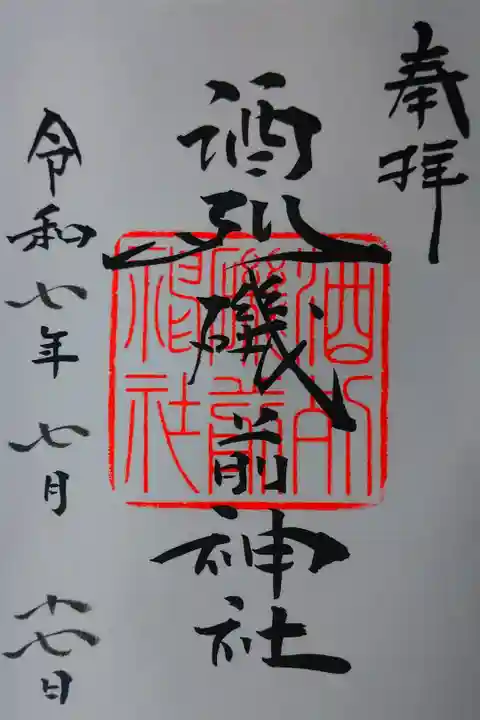 奉拝
酒列磯前神社
酒列
磯前
神社
令和七年七月十七日